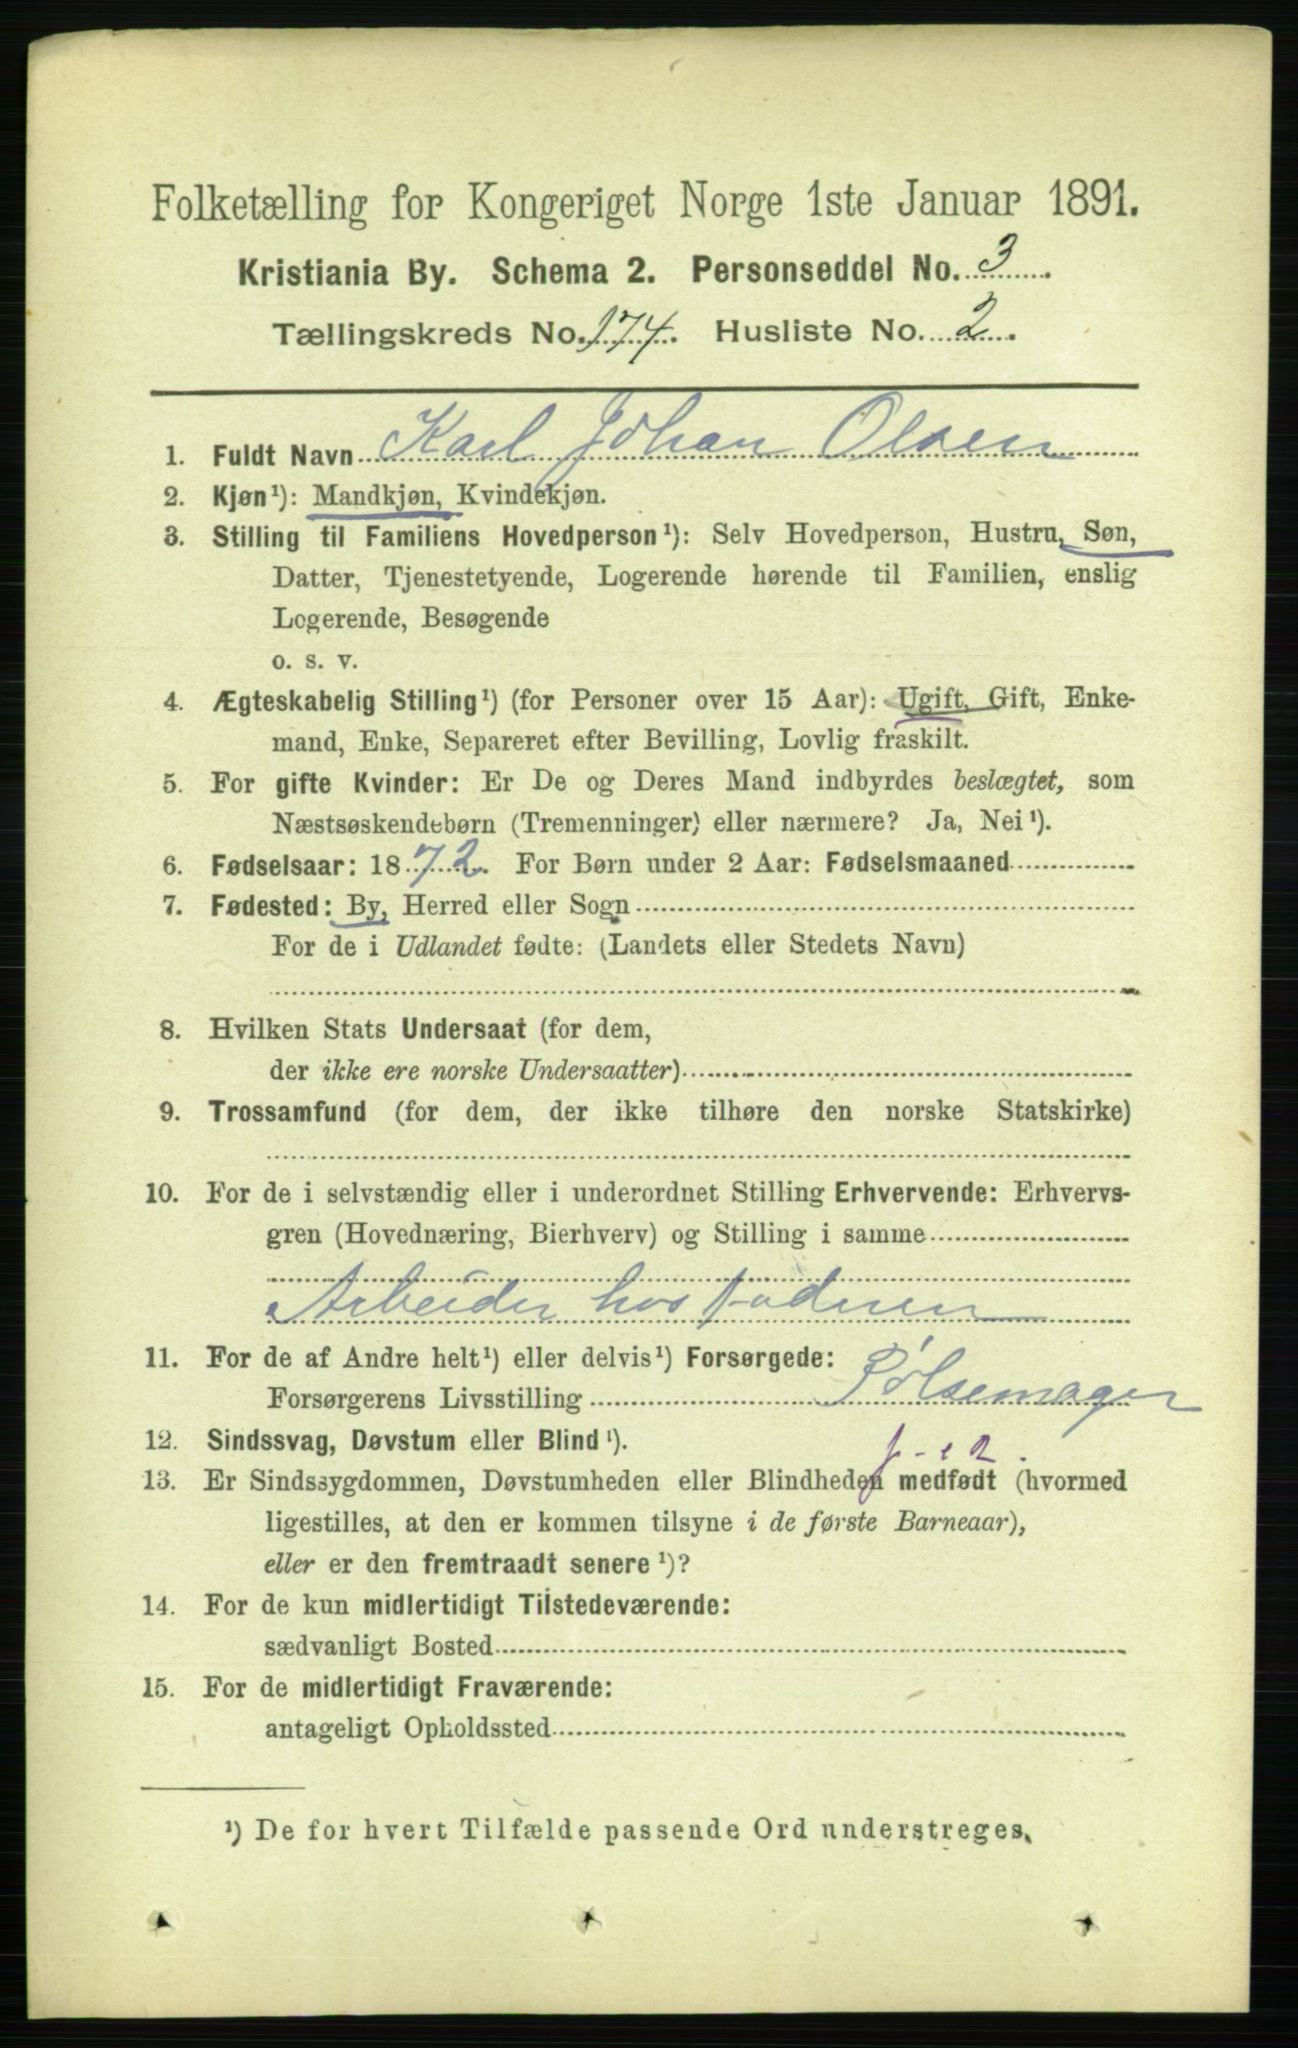 Folketælling for Kongeriget Norge 1ste Januar 1891.
Kristiania By. Schema 2. Personseddel No. 3.
Tællingskreds No. 174. Husliste No. 2.
1. Fuldt Navn Karl Johan Olsen
2. Kjøn¹): Mandkjøn, Kvindekjøn.
3. Stilling til Familiens Hovedperson¹): Selv Hovedperson, Hustru, Søn,
Datter, Tjenestetyende, Logerende hørende til Familien, enslig
Logerende, Besøgende
o. s. v.
4. Ægteskabelig Stilling¹) (for Personer over 15 Aar): Ugift, Gift, Enke-
mand, Enke, Separeret efter Bevilling, Lovlig fraskilt.
5. For gifte Kvinder: Er De og Deres Mand indbyrdes beslægtet, som
Næstsøskendebørn (Tremenninger) eller nærmere? Ja, Nei¹).
6. Fødselsaar: 1872. For Børn under 2 Aar: Fødselsmaaned
7. Fødested: By, Herred eller Sogn
For de i Udlandet fødte: (Landets eller Stedets Navn)
8. Hvilken Stats Undersaat (for dem,
der ikke ere norske Undersaatter)
9. Trossamfund (for dem, der ikke tilhøre den norske Statskirke)
10. For de i selvstændig eller i underordnet Stilling Erhvervende: Erhvervs-
gren (Hovednæring, Bierhverv) og Stilling i samme
Arbeider hos Faderen
11. For de af Andre helt¹) eller delvis¹) Forsørgede:
Forsørgerens Livsstilling Pølsemager
12. Sindssvag, Døvstum eller Blind¹).
13. Er Sindssygdommen, Døvstumheden eller Blindheden medfødt (hvormed
ligestilles, at den er kommen tilsyne i de første Barneaar),
eller er den fremtraadt senere¹)?
14. For de kun midlertidigt Tilstedeværende:
sædvanligt Bosted
15. For de midlertidigt Fraværende:
antageligt Opholdssted
¹) De for hvert Tilfælde passende Ord understreges.